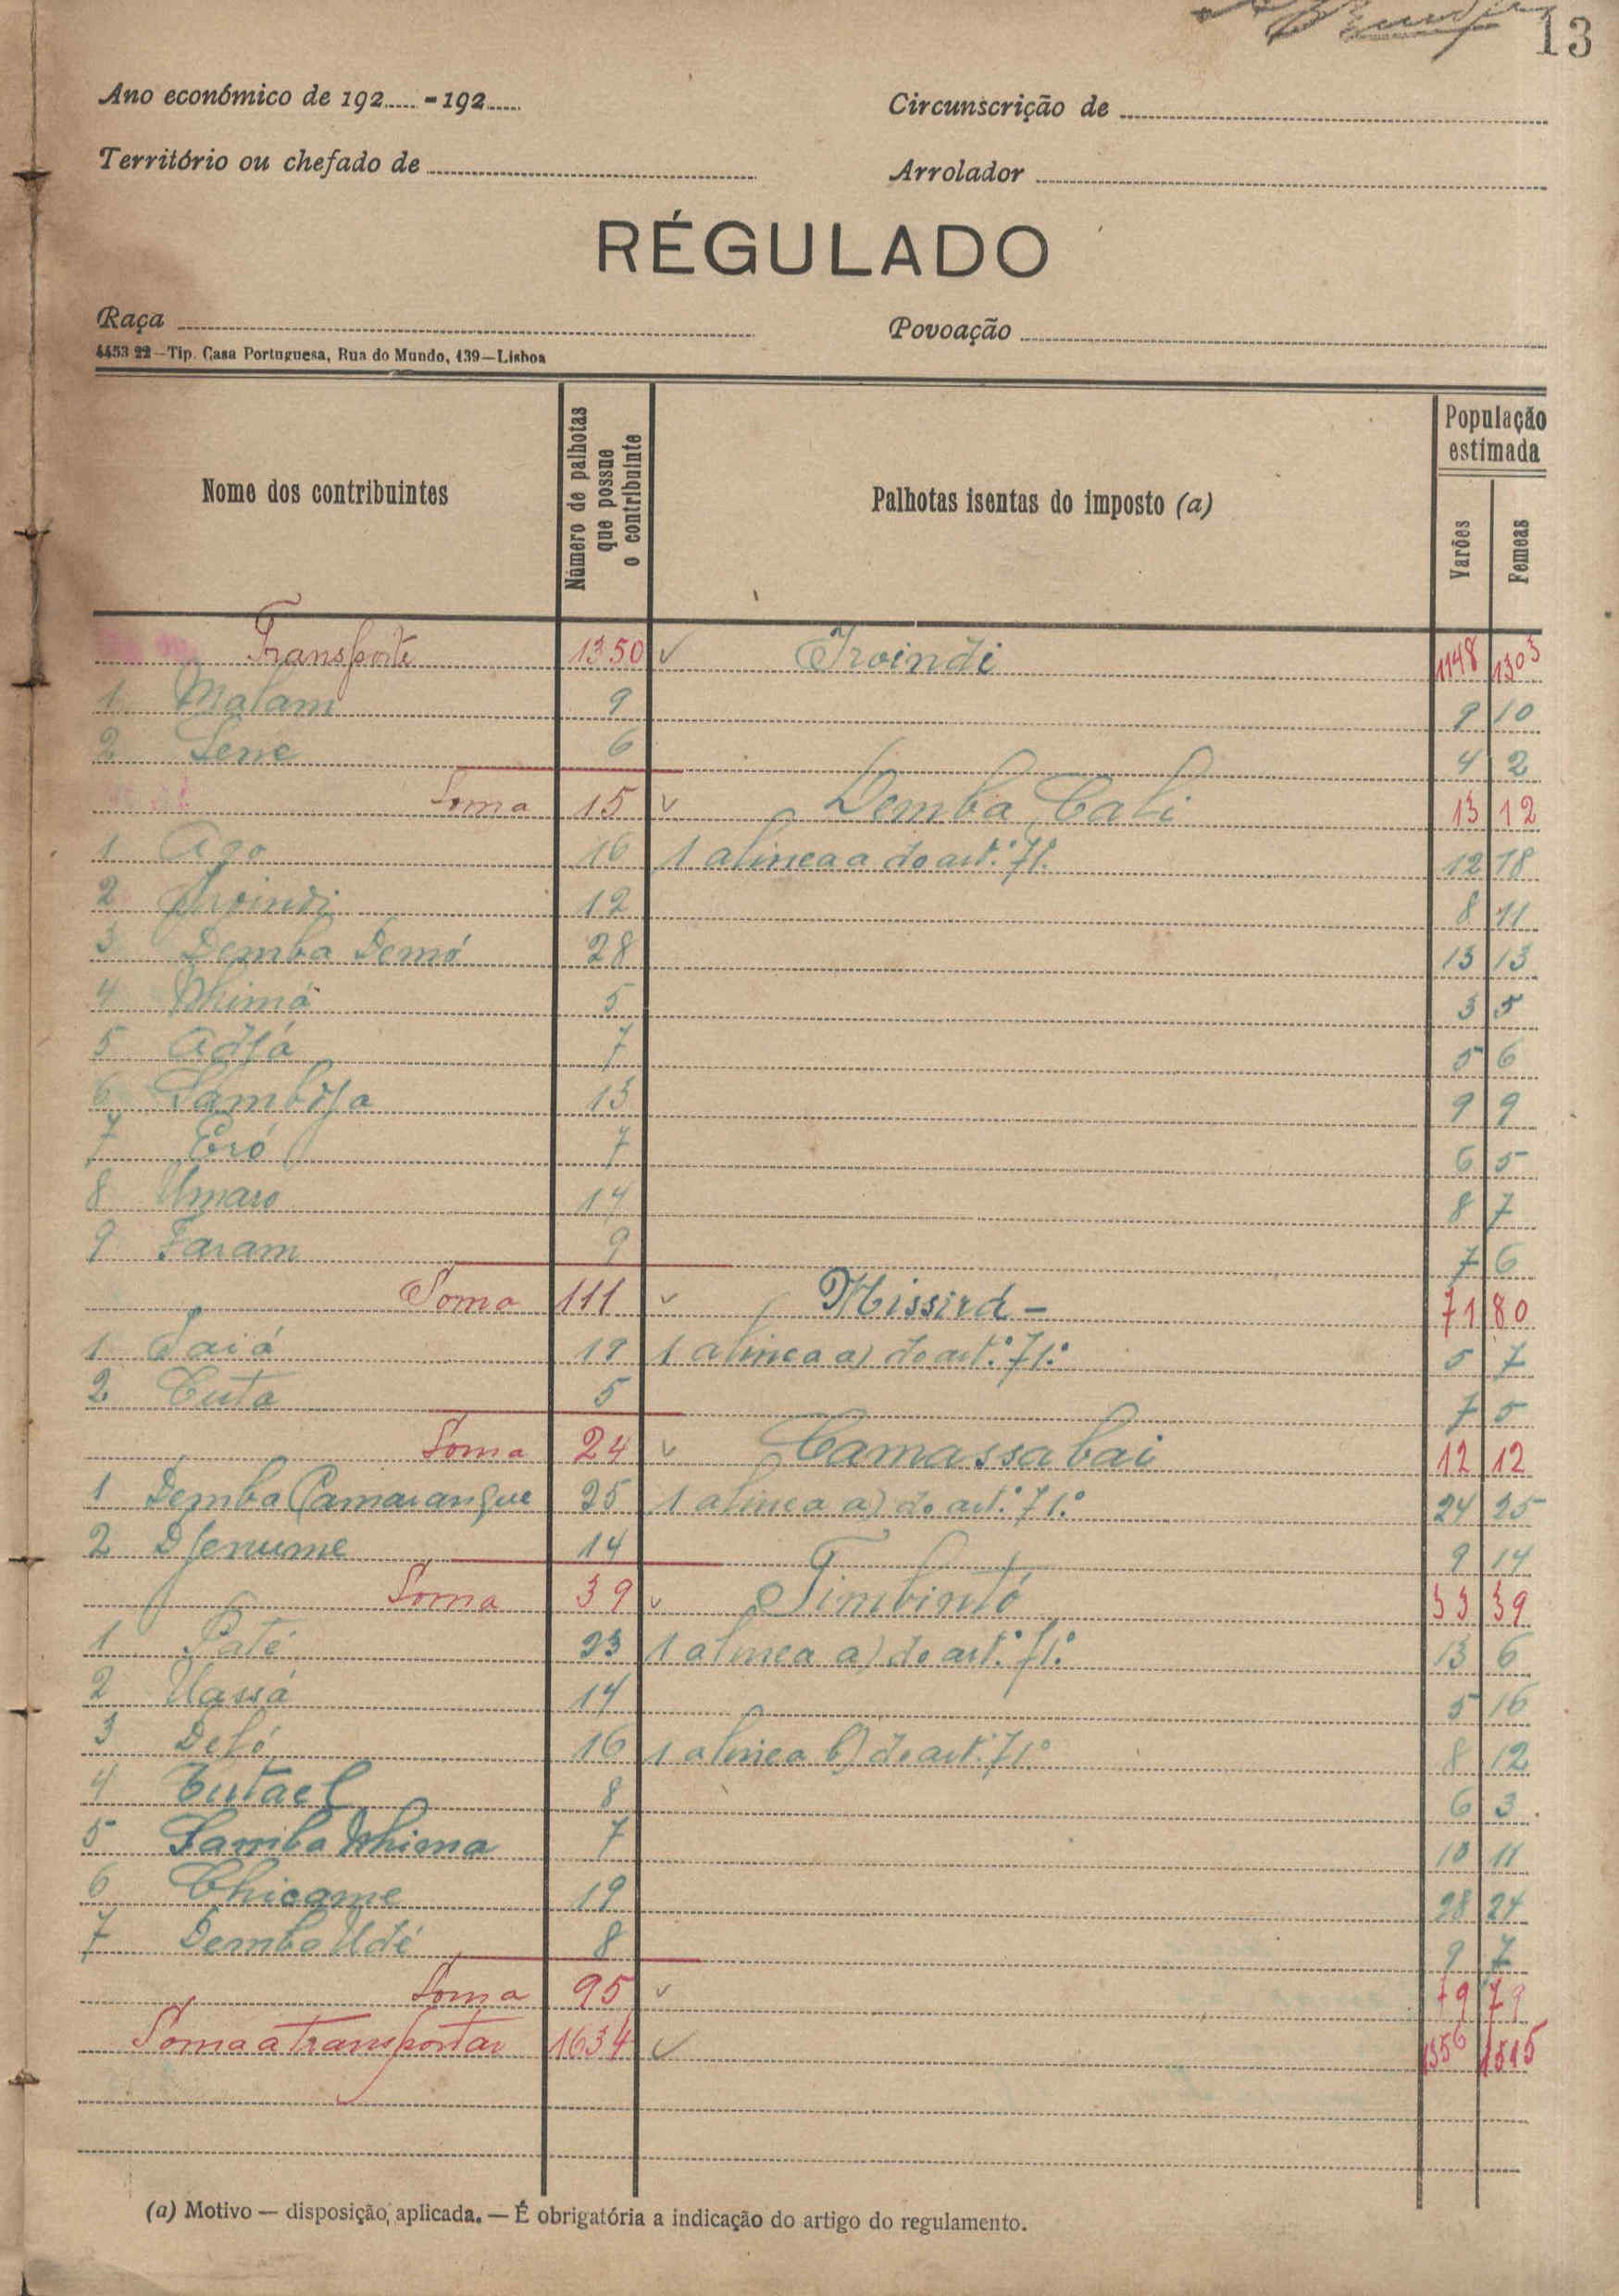 13
Ano económico de 192..... - 192.....
Circunscrição de
Território ou chefado de
Arrolador
RÉGULADO
Raça
Povoação
4453 22—Tip. Casa Portuguesa, Rua do Mundo, 139—Lisboa
Nome dos contribuintes
Número de palhotas que possue o contribuinte
Palhotas isentas do imposto (a)
População estimada
Varões
Femeas
Transporte 1350 ✓ Iroindi 1148 1303
1 Malam 9 9 10
2 Sene 6 4 2
Soma 15 ✓ Demba Cali 13 12
1 Ago 16 1 alinea a do art.º 71.º 12 18
2 Iroindi 12 8 11
3 Demba Demó 28 13 13
4 Nhimá 5 3 5
5 Adjá 7 5 6
6 Sambidja 13 9 9
7 Eró 7 6 5
8 Umaro 14 8 7
9 Faram 9 7 6
Soma 111 ✓ Missirá - 71 80
1 Saiá 19 1 alinea a) do art.º 71.º 5 7
2 Cuta 5 7 5
Soma 24 ✓ Camassabai 12 12
1 Demba Camarangue 25 1 alinea a) do art.º 71.º 24 25
2 Djenume 14 9 14
Soma 39 ✓ Timbintó 33 39
1 Paté 23 1 alinea a) do art.º 71.º 13 6
2 Uassá 14 5 16
3 Deló 16 1 alinea b) do art.º 71.º 8 12
4 Cutael 8 6 3
5 Samba Nhima 7 10 11
6 Chicame 19 28 24
7 Demba Udé 8 9 7
Soma 95 ✓ 79 79
Soma a transportar 1634 ✓ 1356 1515
(a) Motivo — disposição aplicada. — É obrigatória a indicação do artigo do regulamento.